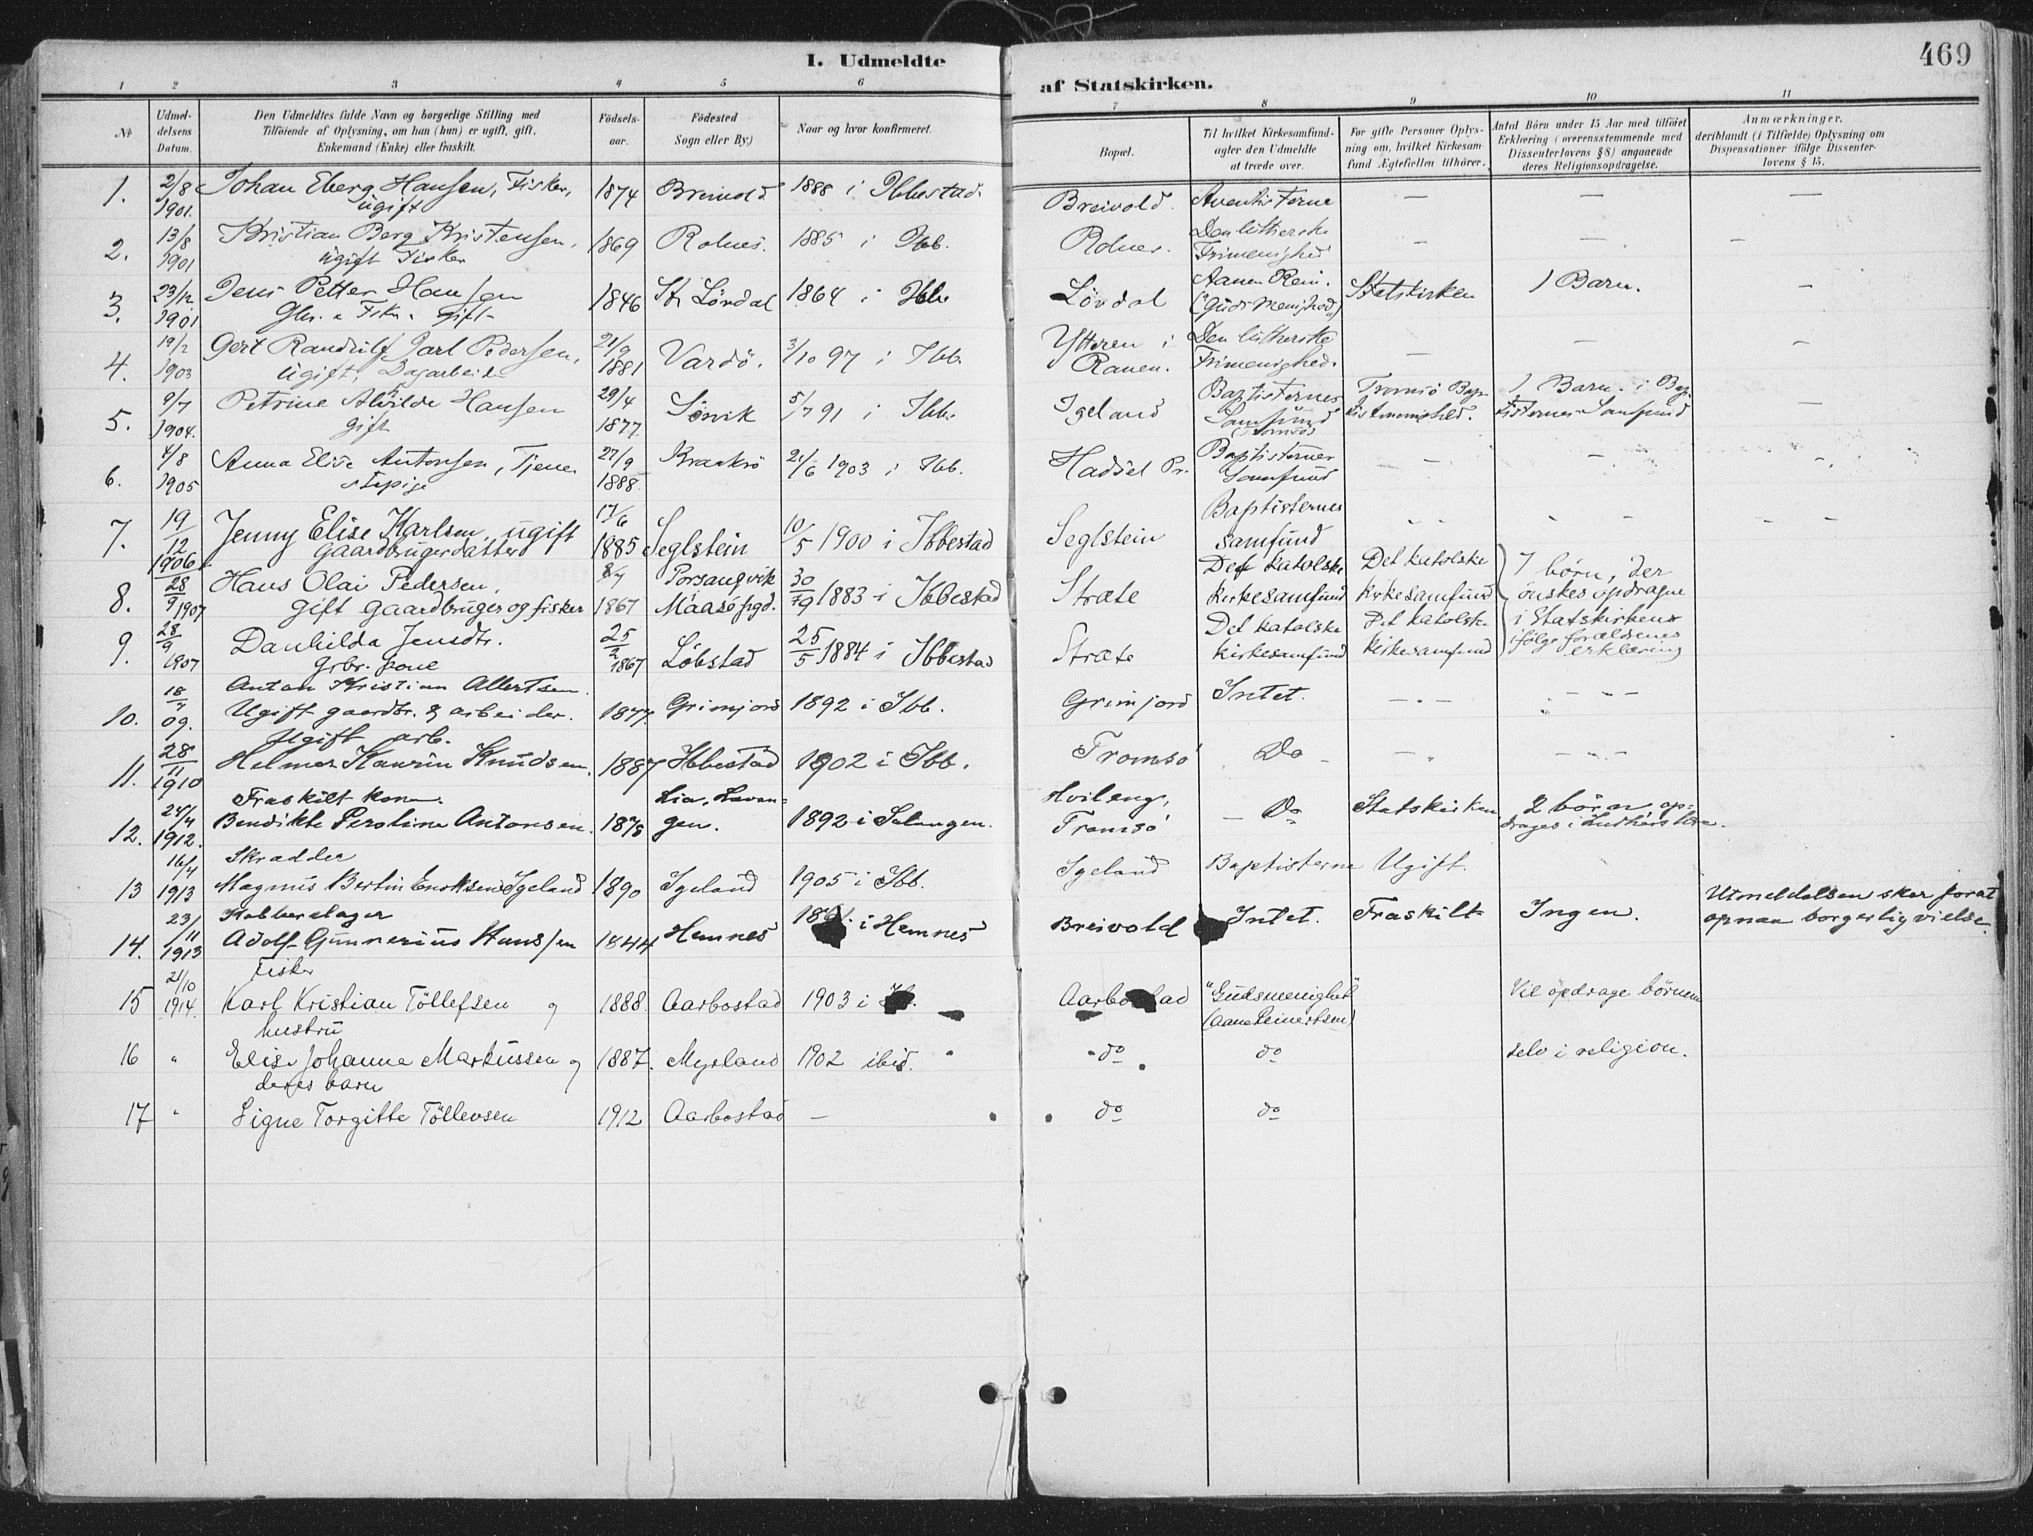 I. Udmeldte
af Statskirken.
469
1 2 3 4 5 6
7 8 9 10 11
№
Udmel-
delsens
Datum.
Den Udmeldtes fulde Navn og borgerlige Stilling med
Tilføiende af Oplysning, om han (hun) er ugift, gift,
Enkemand (Enke) eller fraskilt.
Fødsels-
aar.
Fødested
Sogn eller By.)
Naar og hvor konfirmeret.
Bopæl.
Til hvilket Kirkesamfund-
agter den Udmeldte
at træde over.
For gifte Personer Oplys-
ning om, hvilket Kirkesam-
fund Ægtefællen tilhører.
Antal Børn under 15 Aar med tilføiet
Erklæring (overensstemmende med
Dissenterlovens §8) angaaende
deres Religionsopdragelse.
Anmærkninger,
deriblandt (i Tilfælde) Oplysning om
Dispensationer ifølge Dissenter-
lovens § 15.
1. 2/8 1901. Johan Eberg Hansen, Fisker,
ugift
1874 Breivold 1888 i Ibbestad. Breivold. Aventisterne — — —
2. 13/8 1901 Kristian Berg Kristensen,
ugift Fisker
1869 Rolnes. 1885 i Ibb. Rolnes. Den lutherske
Frimenighed — — —
3. 23/12 1901 Jens Petter Hansen
Gbr. & Fisk. Gift
1846 St. Lövdal 1864 i Ibb. Lövdal Aanen Rein.
("Guds Menighed) Statskirken 1 Barn. —
4. 19/2 1903 Gert Randulf Jarl Pedersen,
ugift, Dagarbeider
21/9 1881 Vardö. 3/10 97 i Ibb. Ytteren i
Ranen. Den lutherske
Frimenighed. — — —
5. 9/7 1904. Petrine Alvilde Hansen
gift
29/4 1877 Sörvik 5/7 91 i Ibb. Igeland Baptisternes
Samfund
(Tromsö) Tromsö Bap-
tistmenighed. 1 Barn. i Bap-
tisternes Samfund —
6. 4/8 1905 Anna Elise Antonsen, Tjene-
stepige
27/9 1888 21/6 1903 i Ibb. Hadsel Pr. Baptisternes
Samfund
7. 19/12 1906 Jenny Elise Karlsen, ugift
gaardbrugerdatter
17/6 1885 Seglstein 10/5 1900 i Ibbestad Seglstein Baptisternes
samfund
8. 28/9 1907 Hans Olai Pedersen,
gift gaardbruger og fisker
1867 Porsangvik
Maasö pgd. 1883 i Ibbestad Stræte Det katolske
kirkesamfund Det katolske
kirkesamfund 7 børn, der
ønskes opdragne
i Statskirken
ifølge forældrenes
erklæring
9. 28/9 1907 Danhilda Jensdtr.
grbr. kone
25/2 1867 Löbstad 25/5 1884 i Ibbestad Stræte Det katolske
kirkesamfund Det katolske
kirkesamfund
10. 09. Anton Kristian Albertsen
Ugift gaardbr. & arbeider.
1877 Grimjord 1892 i Ibb. Grimjord Intet.
11. 28/11 1910 Ugift arb.
Helmer Haurin Knudsen.
1887 Ibbestad 1902 i Ibb. Tromsö Do
12. 24/4 1912. Fraskilt kone.
Bendikte Peroline Antonsen.
1878 Lia, Lavan-
gen. 1892 i Salangen. Hvileng,
Tromsö Do Statskirken 2 börn op-
drages i Luthers lære.
13 16/4 1913 Skrædder
Magnus Bertin Enoksen Igeland
1890 Igeland 1905 i Ibb. Igeland Baptisterne Ugift.
14. 23/11 1913 Kobberslager
Adolf Gunnerius Hansen
1844 Hemnes i Hemnes Breivold Intet. Fraskilt Ingen. Utmeldelsen sker forat
opnaa borgerlig vielse.
15 21/10 1914. Fisker
Karl Kristian Töllefsen og
hustru
1888. Aarbostad 1903 i Aarbostad "Gudsmenighet"
(Aane Reinertsen) Vil opdrage börnene
16 " Elise Johanne Markussen og
deres barn
1887. Myrland 1902 ibid. do do selv i religion.
17 " Signe Torgitte Töllevsen 1912 Aarbostad — do do